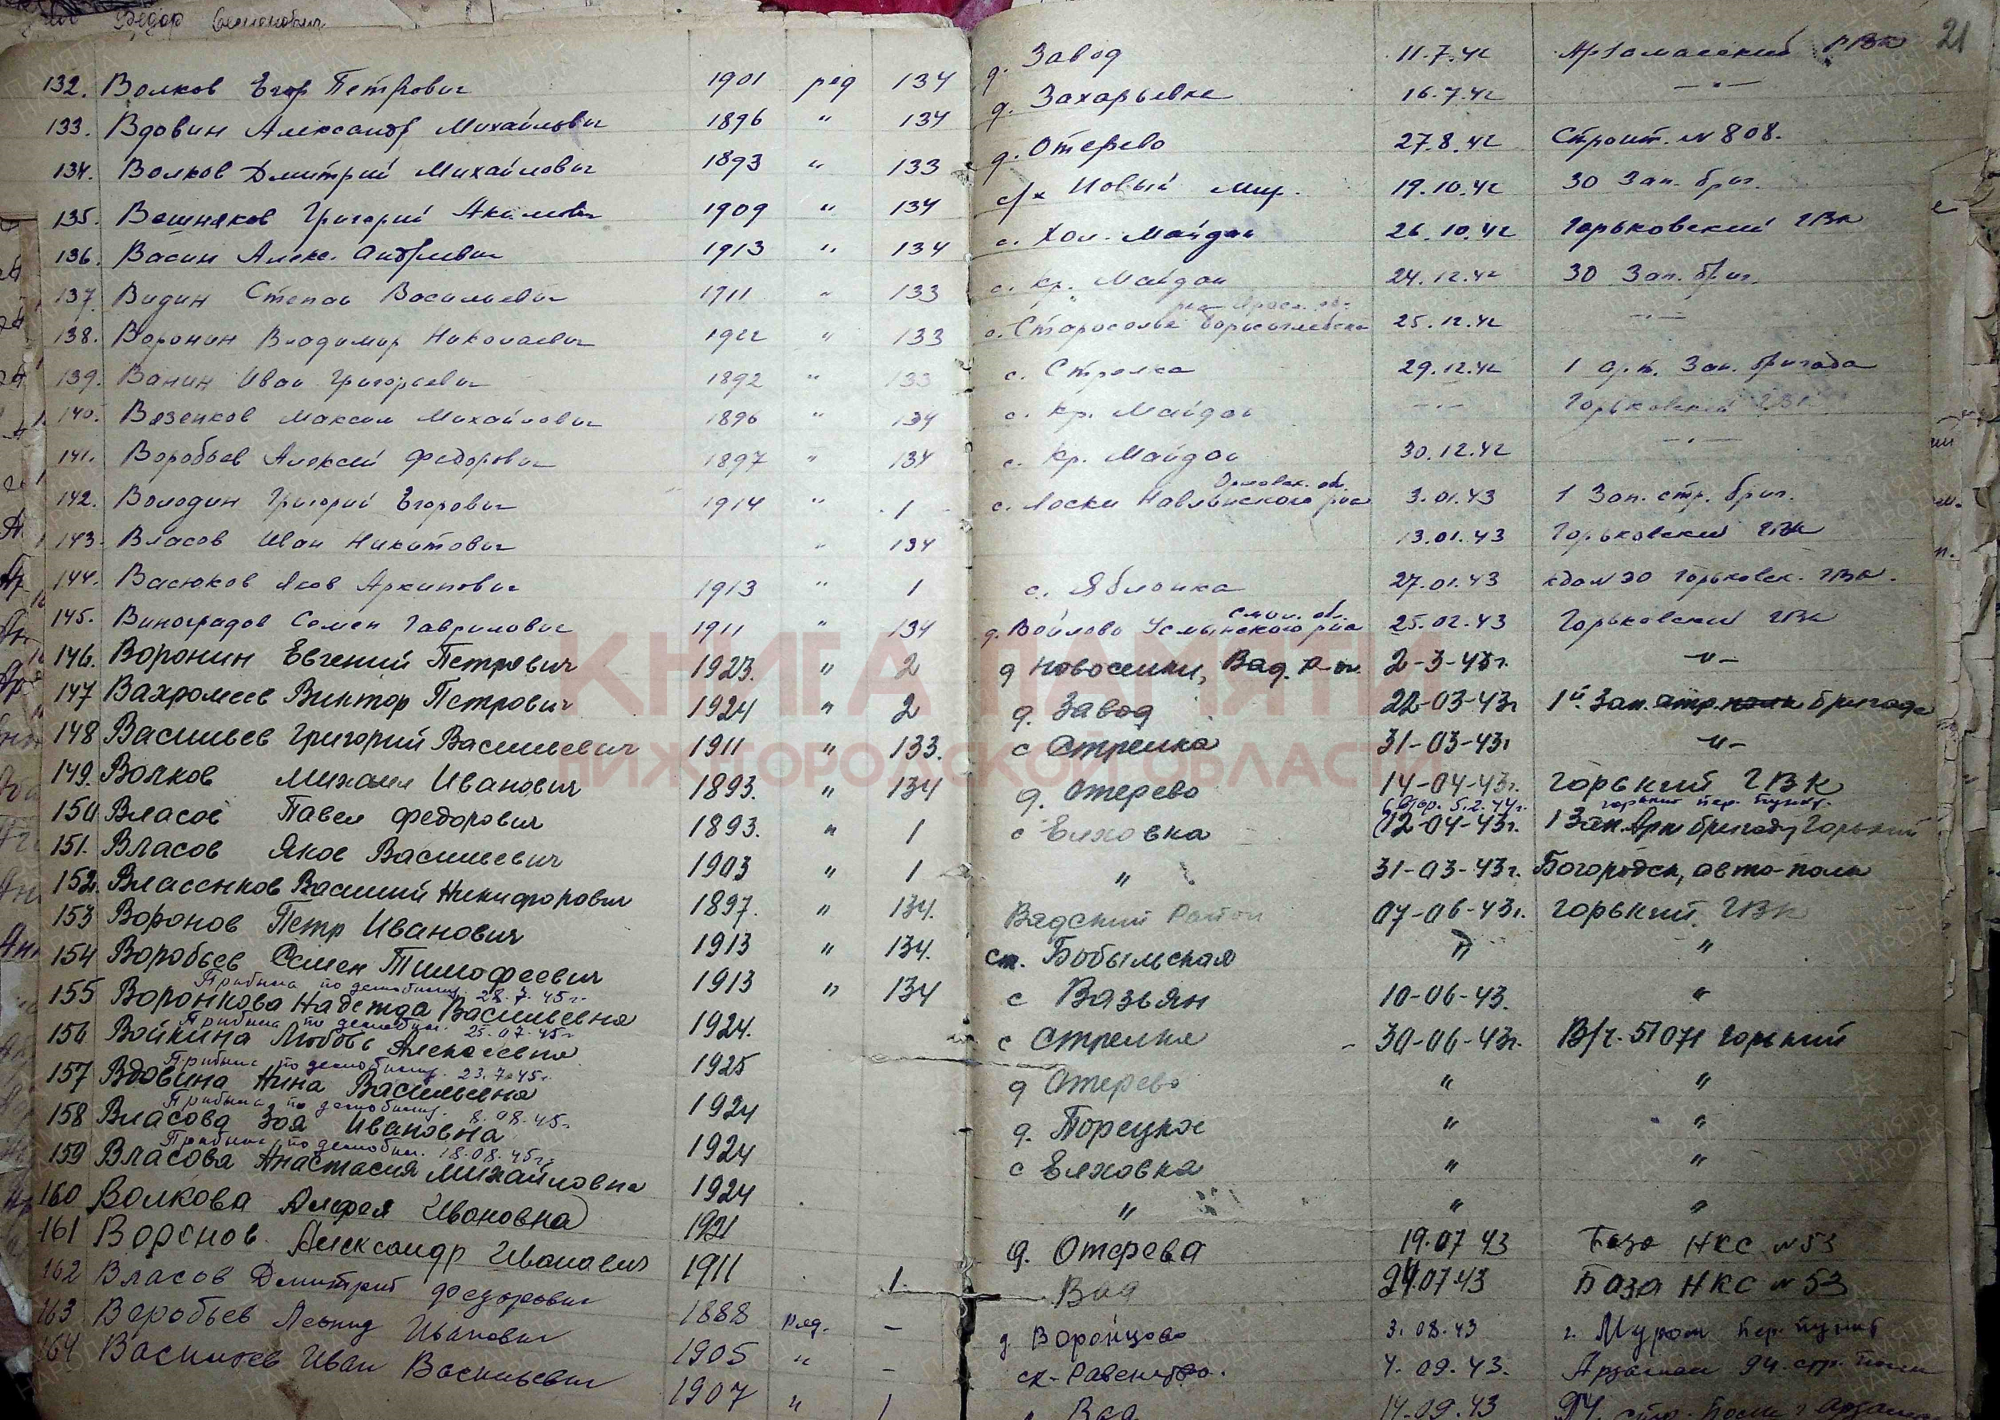 Федор Семенович
21
132. Волков Егор Петрович 1901 ряд 134 д. Завод 11.7.42 Арзамасский РВК
133. Вдовин Александр Михайлович 1896 " 134 д. Захарьевка 16.7.42 -"-
134. Волков Дмитрий Михайлович 1893 " 133 д. Отерево 27.8.42 Строит. №808.
135. Вешняков Григорий Акимович 1909 " 134 с/х Новый Мир. 19.10.42 30 Зап. бриг.
136. Васин Алекс. Андреевич 1913 " 134 с. Хол. Майдан 26.10.42 Горьковский ГВК
137. Видин Степан Васильевич 1911 " 133 с. Кр. Майдан 24.12.42 30 Зап. бриг.
138. Воронин Владимир Николаевич 1922 " 133 с. Старосолье Борисоглебска 25.12.42 -"-
139. Ванин Иван Григорьевич 1892 " 133 с. Стрелка 29.12.42 1 Зап. бригада
140. Вязенков Максим Михайлович 1896 " 134 с. Кр. Майдан -"- Горьковский ГВК
141. Воробьев Алексей Федорович 1897 " 134 с. Кр. Майдан 30.12.42 -"-
142. Володин Григорий Егорович 1914 " 1 с. Лоски Навлинского р-на Орловск. об. 3.01.43 1 Зап. стр. бриг.
143. Власов Иван Никитович " 134 13.01.43 Горьковский ГВК
144. Васюков Яков Архипович 1913 " 1 с. Яблонка 27.01.43 Горьковск. ГВК.
145. Виноградов Семен Гаврилович 1911 " 134 д. Войлово Усмынского р-на Смол. об. 25.02.43 Горьковский ГВК
146. Воронин Евгений Петрович 1923. " 2 д Новоселки, Вад. р-он. 2-3-43г. -"-
147 Вахромеев Виктор Петрович 1924 " 2 д. Завод 22-03-43г 1й Зап. стр. бригада
148 Васильев Григорий Васильевич 1911 " 133. с Стрелка 31-03-43г -"-
149. Волков Михаил Иванович 1893. " 134 д. Отерево 14-04-43г. Горький ГВК
150 Власов Павел Федорович 1893. " 1 с Елховка 12-04-43г. 1 Зап. Арт бригаду Горький
151. Власов Яков Васильевич 1903 " 1 " 31-03-43г. Богородск, авто-полк
152. Власенков Василий Никифорович 1897. " 134. Вадский Район 07-06-43г. Горький. ГВК
153 Воронов Петр Иванович 1913 " 134. ст. Бобыльская " "
154 Воробьев Семен Тимофеевич 1913 " 134 с Вазьян 10-06-43. "
Прибыла по демобилиз. 28.7.45г.
155 Воронкова Надежда Васильевна 1924. с Стрелка 30-06-43г. В/ч. 51071 Горький
Прибыла по демобил. 25.07.45г
156 Войкина Любовь Алексеевна 1925 д Отерево " "
Прибыла по демобилиз. 23.7.45г.
157 Вдовина Нина Васильевна 1924 д. Порецкое " "
Прибыла по демобилиз. 8.08.45г.
158 Власова Зоя Ивановна 1924 с Елховка " "
Прибыла по демобил. 18.08.45г.
159 Власова Анастасия Михайловна 1924 " " "
160 Волкова Алефея Ивановна 1921 д. Отерева 19.07 43 База НКС №53
161 Воронов Александр Иванович 1911 1. Вад 24.07.43 База НКС №53
162 Власов Дмитрий Федорович 1888 ряд. - д Воронцово 3.08.43 г. Муром пер. пункт
163 Воробьев Леонид Иванович 1905 " - ск-Равенство. 4.09.43. Арзамас 94. стр. полк
164 Васильев Иван Васильевич 1907 " 1 Вад 14.09.43 94 стр. полк г Арзамас
КНИГА ПАМЯТИ
НИЖЕГОРОДСКОЙ ОБЛАСТИ